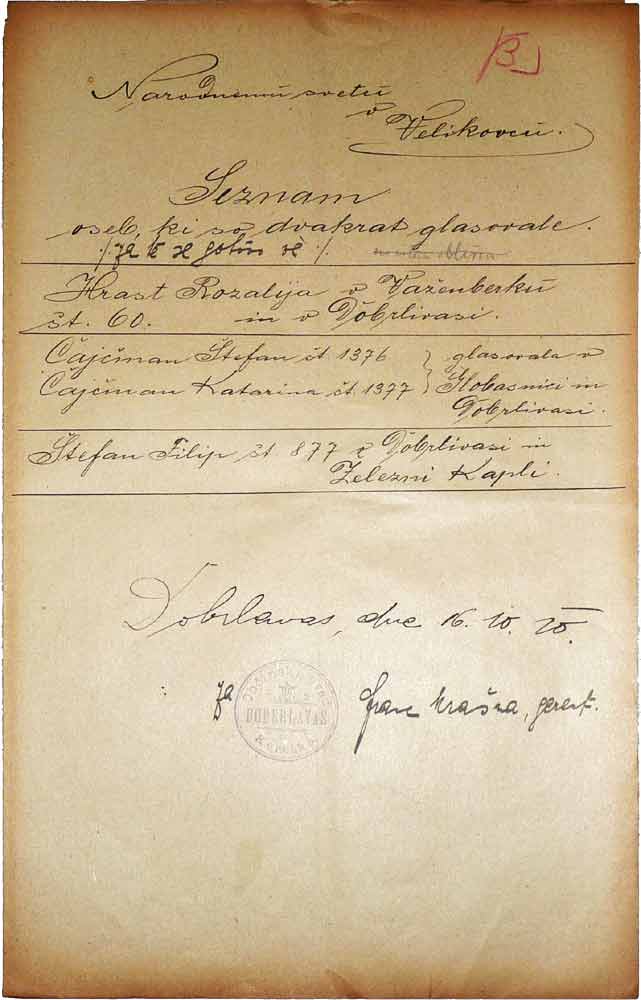 B
Narodnemu svetu
v
Velikovcu.
Seznam
oseb, ki so dvakrat glasovale.
/. za te se gotovo ve ./
Hrast Rozalija v Važenberku
št. 60. in v Dobrlivasi.
Čajčman Štefan št 1376 } glasovala v
Čajčman Katarina št. 1377 } Globasnici in
Dobrlivasi.
Štefan Filip št 877 v Dobrlivasi in
Železni Kapli.
Dobrlavas, dne 16. 10. 20.
Za
DOBERLAVAS
Franc Krašna, gerent.